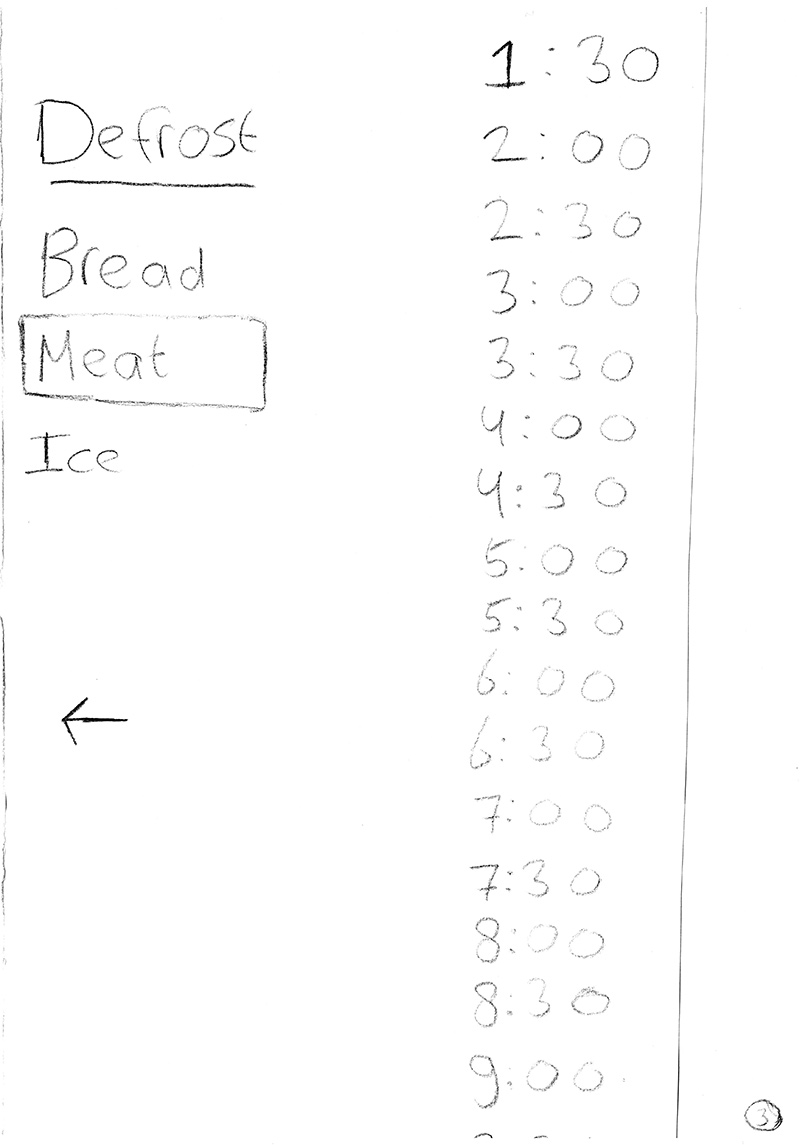 Defrost
Bread
Meat
Ice
←
1:30
2:00
2:30
3:00
3:30
4:00
4:30
5:00
5:30
6:00
6:30
7:00
7:30
8:00
8:30
9:00
3